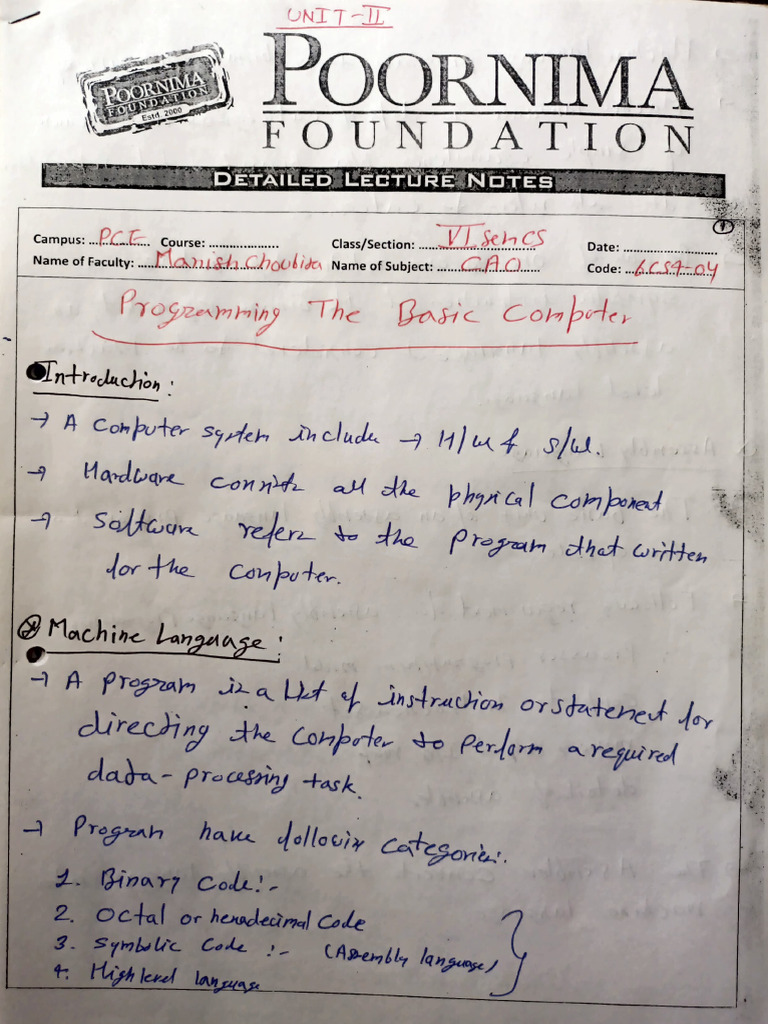 UNIT-II
POORNIMA
FOUNDATION
Estd. 2000
POORNIMA
FOUNDATION
DETAILED LECTURE NOTES
1
Campus: ...PCE......... Course: ................... Class/Section: ......VI Sem CS Date: ........................
Name of Faculty: ....Manish Choubisa Name of Subject: ......CAO............ Code: ...6CS4-04
Programming The Basic Computer
Introduction:
→ A Computer system include → H/W & S/W.
→ Hardware consists all the physical component
→ Software refers to the program that written
for the computer.
Machine Language:
→ A program is a list of instruction or statement for
directing the computer to perform a required
data-processing task.
→ Program have following categories:.
1. Binary Code:-
2. Octal or hexadecimal Code
3. Symbolic Code :- (Assembly language)
4. High level language